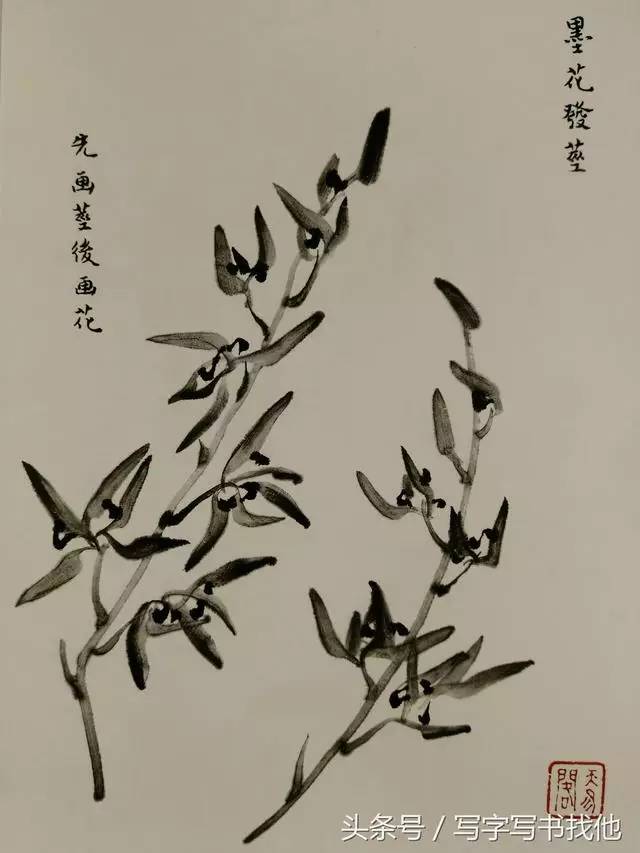 墨花發莖
先画莖後画花
头条号／写字写书找他